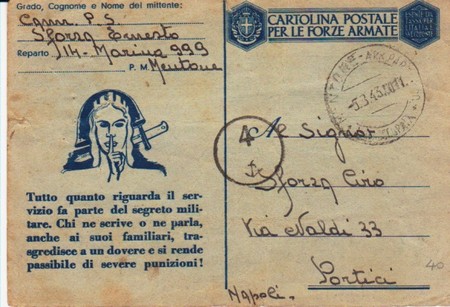 Grado, Cognome e Nome del mittente:
Cann. P. S.
Sforza Ernesto
Reparto 114. Marina 999
P. M. Mentone
Tutto quanto riguarda il ser-
vizio fa parte del segreto mili-
tare. Chi ne scrive o ne parla,
anche ai suoi familiari, tra-
sgredisce a un dovere e si rende
passibile di severe punizioni!
CARTOLINA POSTALE
PER LE FORZE ARMATE
MENTONE
4
Al Signor
Sforza Ciro
Via Naldi 33
Portici
Napoli.
40